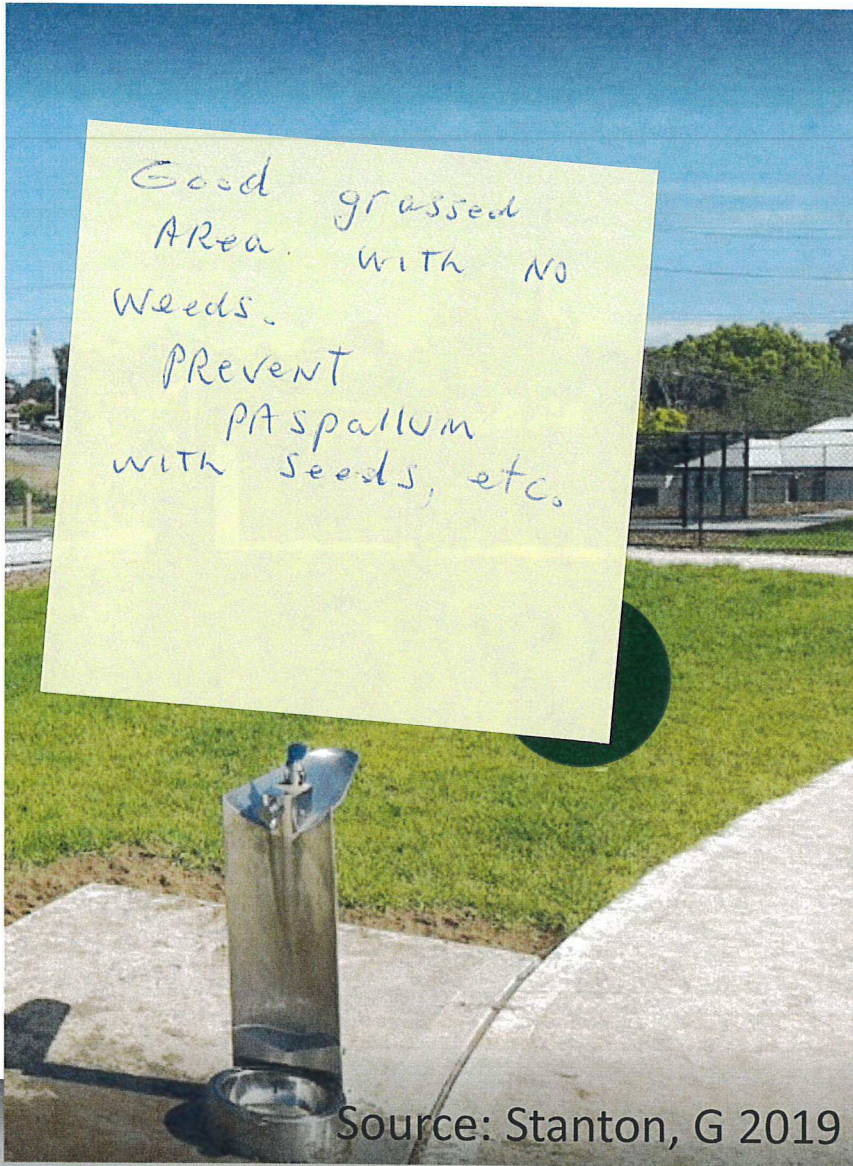 Good grassed
ARea. with No
weeds.
PRevent
PASpallum
with seeds, etc.
Source: Stanton, G 2019